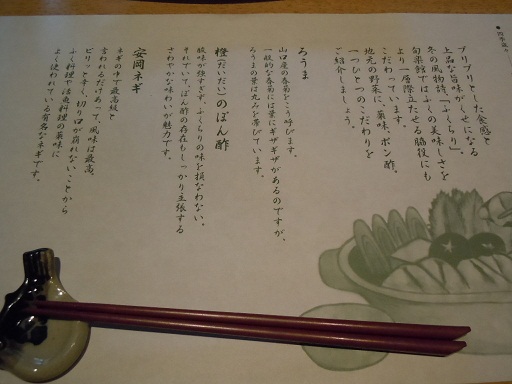 プリプリとした食感と
上品な旨味がクセになる
冬の風物詩、「ふくちり」。
旬菜館ではふくの美味しさを
より一層際立たせる脇役にも
こだわっています。
地元の野菜に、薬味、ポン酢。
一つひとつのこだわりを
ご紹介しましょう。
ろうま
山口産の春菊をこう呼びます。
一般的な春菊には葉にギザギザがあるのですが、
ろうまの葉は丸みを帯びています。
橙(だいだい)のぽん酢
酸味が強すぎず、ふくちりの味を損なわない。
それでいて、ぽん酢の存在もしっかり主張する
さわやかな味わいが魅力です。
安岡ネギ
ネギの中で最高級と
言われるだけあって、風味は最高。
ピリッと辛く、切り口が崩れないことから
ふく料理や活魚料理の薬味に
よく使われている有名なネギです。